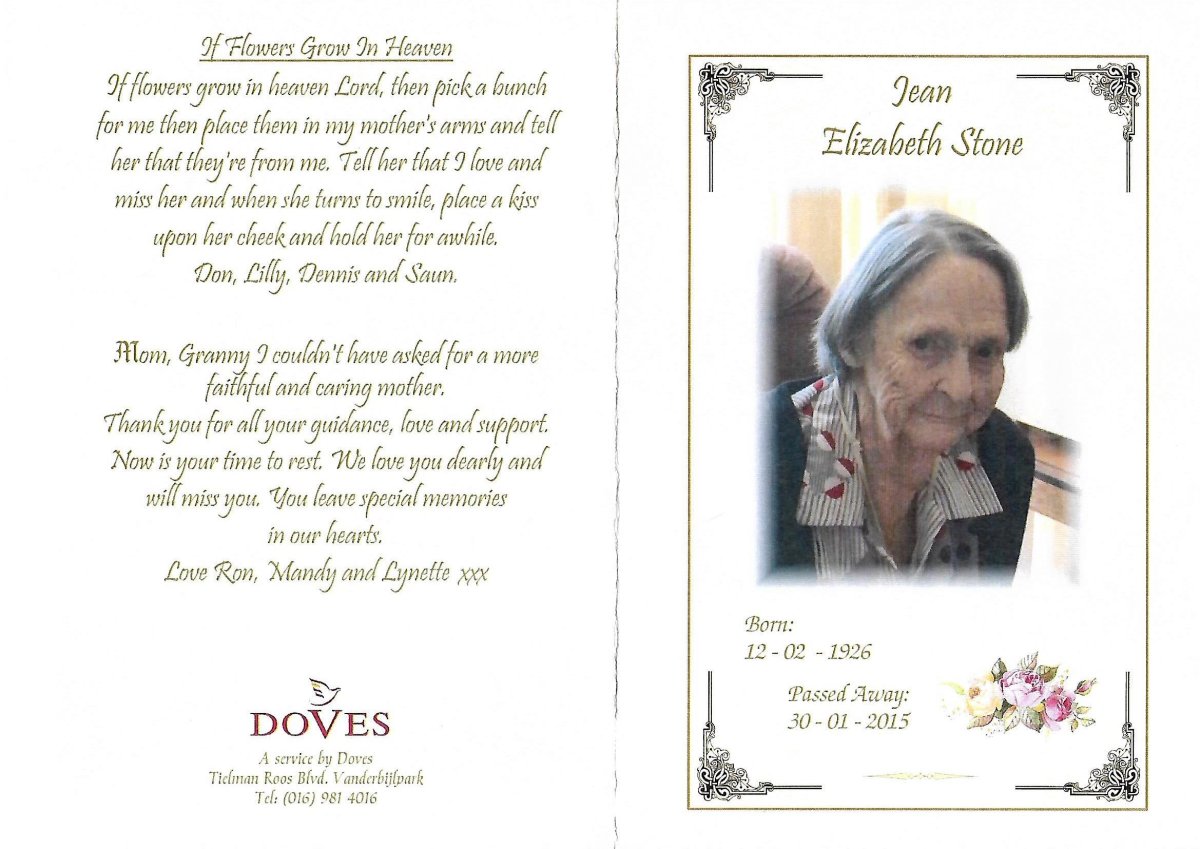 If Flowers Grow In Heaven
If flowers grow in heaven Lord, then pick a bunch
for me then place them in my mother's arms and tell
her that they're from me. Tell her that I love and
miss her and when she turns to smile, place a kiss
upon her cheek and hold her for awhile.
Don, Lilly, Dennis and Saun.
Mom, Granny I couldn't have asked for a more
faithful and caring mother.
Thank you for all your guidance, love and support.
Now is your time to rest. We love you dearly and
will miss you. You leave special memories
in our hearts.
Love Ron, Mandy and Lynette xxx
DOVES
A service by Doves
Tielman Roos Blvd. Vanderbijlpark
Tel: (016) 981 4016
Jean
Elizabeth Stone
Born:
12 - 02 - 1926
Passed Away:
30 - 01 - 2015